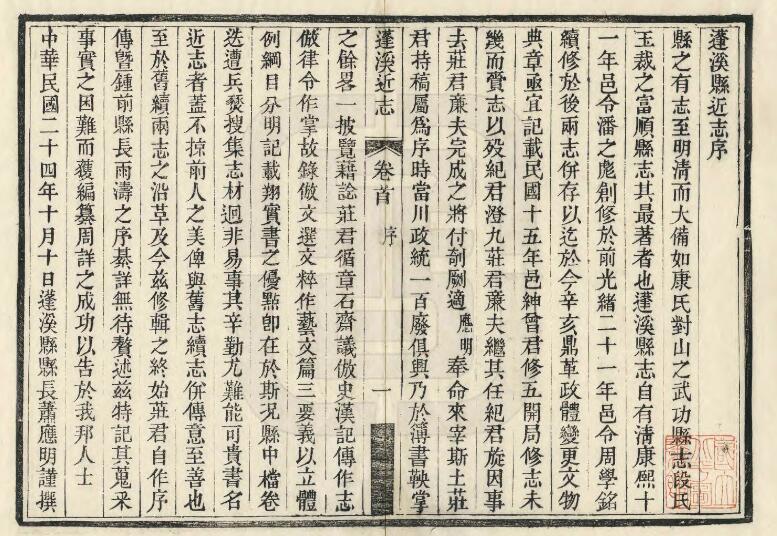 蓬溪縣近志序
縣之有志至明清而大備如康氏對山之武功縣志段氏
玉裁之富順縣志其最著者也蓬溪縣志自有清康熙十
一年邑令潘之彪創修於前光緒二十一年邑令周學銘
續修於後兩志併存以迄於今辛亥鼎革政體變更文物
典章亟宜記載民國十五年邑紳曾君修五開局修志未
幾而賫志以歿紀君澄九莊君亷夫繼其任紀君旋因事
去莊君亷夫完成之將付剞劂適應明奉命來宰斯土莊
君持稿屬爲序時當川政統一百廢俱興乃於簿書鞅掌
蓬溪近志 卷首 序 一
之餘畧一披覽藉諗莊君循章石齋議倣史漢記傳作志
倣律令作掌故錄倣文選文粹作藝文篇三要義以立體
例綱目分明記載翔實書之優點卽在於斯况縣中檔卷
迭遭兵燹搜集志材迥非易事其辛勤尤難能可貴書名
近志者蓋不掠前人之美俾與舊志續志併傳意至善也
至於舊續兩志之沿革及今兹修輯之終始莊君自作序
傳曁鍾前縣長雨濤之序綦詳無待贅述兹特記其蒐采
事實之困難而獲編纂周詳之成功以告於我邦人士
中華民國二十四年十月十日蓬溪縣縣長蕭應明謹撰